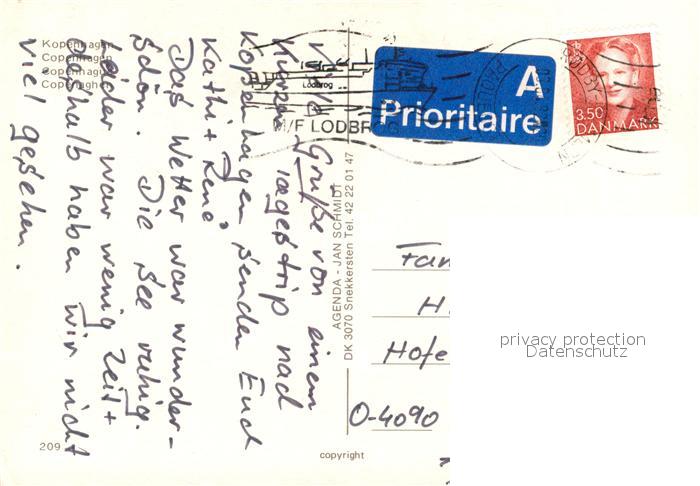 Kopenhagen
Copenhague
Copenhagen
Viele Grüße von einem
kurzen Tagestrip nach
Kopenhagen senden Euch
Kathi + René.
Das Wetter war wunder-
schön. Die See ruhig.
Leider war wenig Zeit +
deshalb haben wir nicht
viel gesehen.
209
Lodbrog
M/F LODBROG
A
Prioritaire
3.50
DANMARK
RØDBY
AGENDA - JAN SCHMIDT
DK 3070 Snekkersten Tel. 42 22 01 47
Fam
H
Hofe
O-4090
copyright
privacy protection
Datenschutz